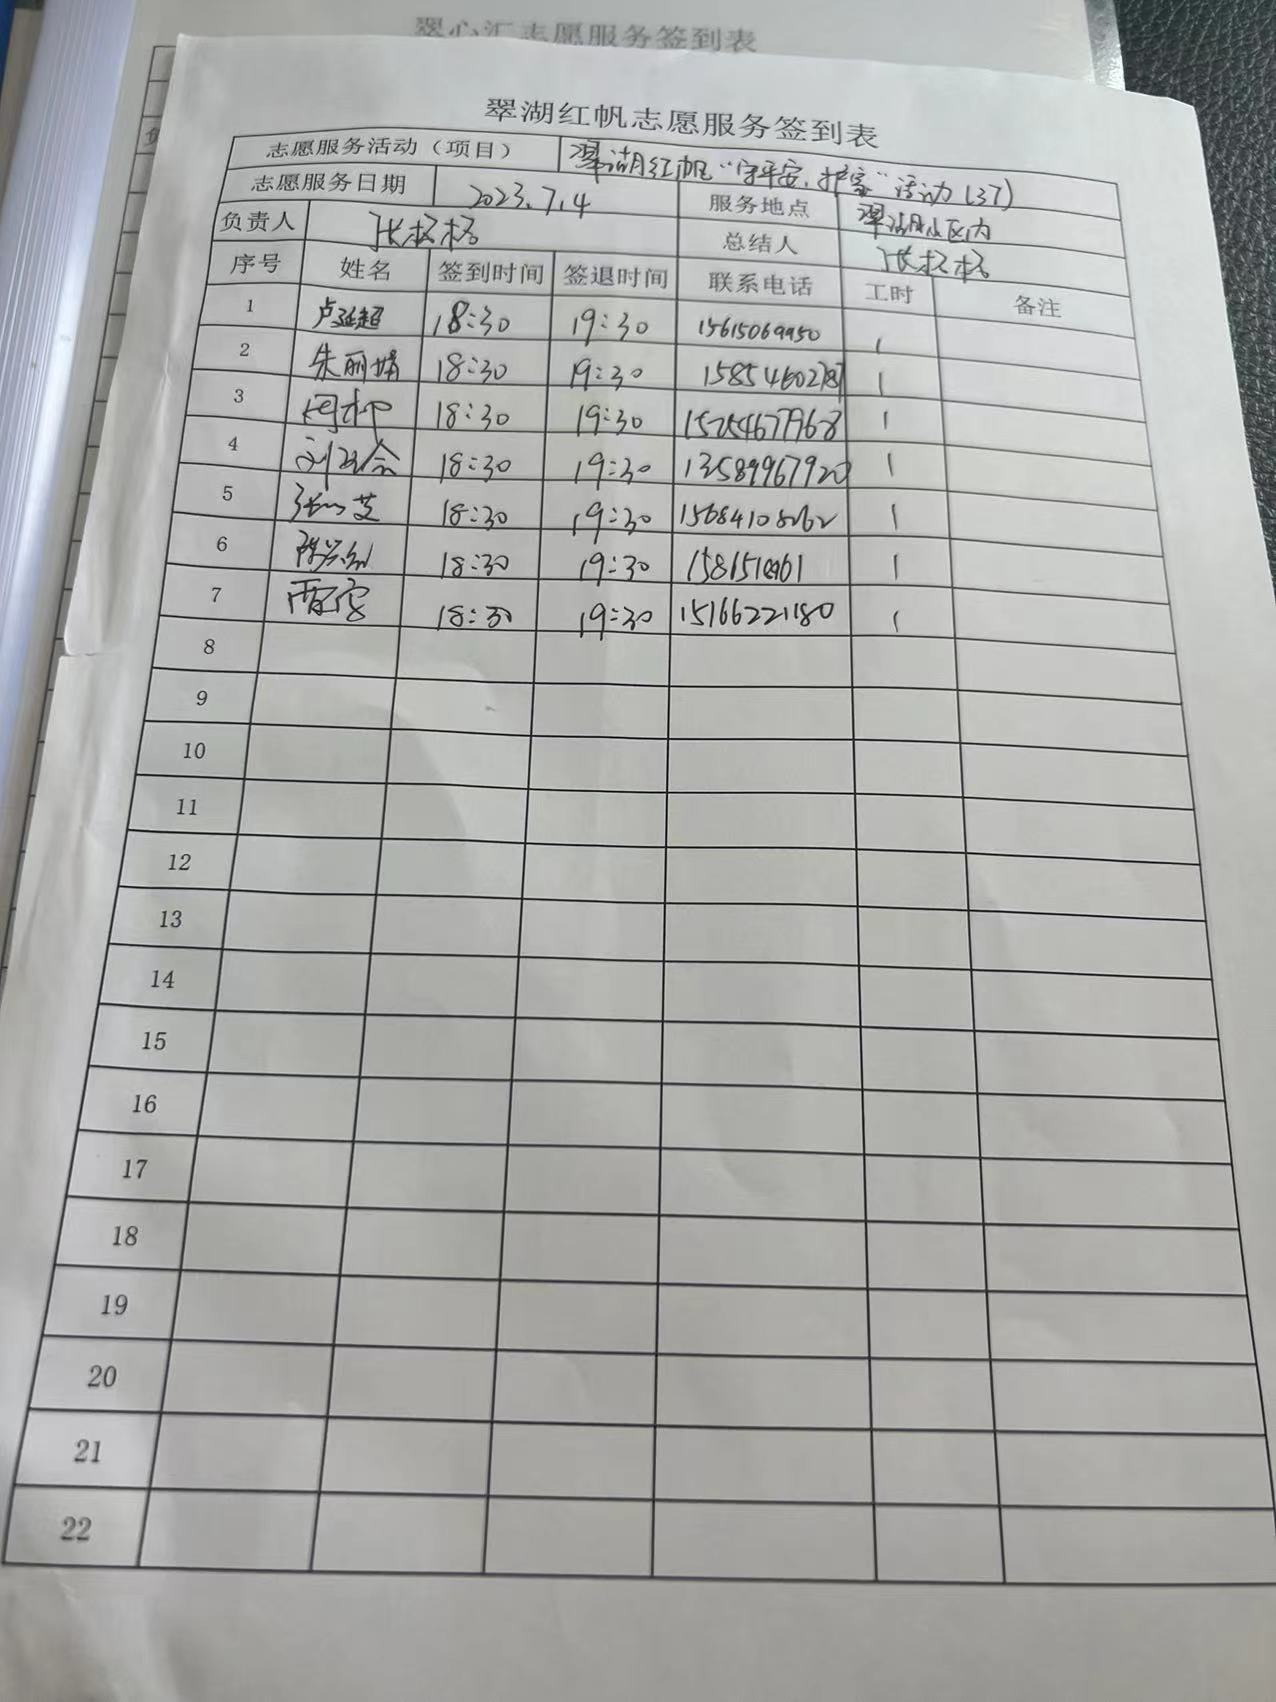 翠心汇志愿服务签到表
翠湖红帆志愿服务签到表
志愿服务活动（项目） 翠湖红帆“守平安，护家”活动（37）
志愿服务日期 2023.7.4 服务地点 翠湖小区内
负责人 张格格 总结人 张格格
序号 姓名 签到时间 签退时间 联系电话 工时 备注
1 卢延超 18:30 19:30 15615069950 1
2 朱丽娟 18:30 19:30 1
3 18:30 19:30 15254677968 1
4 18:30 19:30 13589967920 1
5 18:30 19:30 1
6 18:30 19:30 1
7 18:30 19:30 15166221180 1
8
9
10
11
12
13
14
15
16
17
18
19
20
21
22